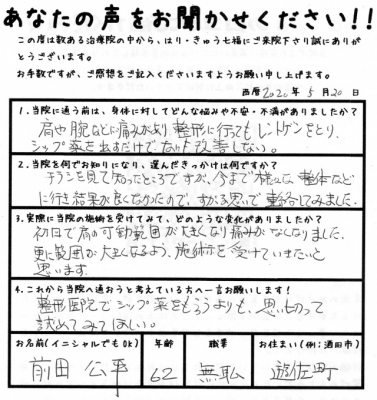 あなたの声をお聞かせください!!
この度は数ある治療院の中から、はり・きゅう七福にご来院下さり誠にありが
とうございます。
お手数ですが、ご感想をご記入くださいますようお願い申し上げます。
西暦2020年 5月20日
1.当院に通う前は、身体に対してどんな悩みや不安・不満がありましたか?
肩や腕などに痛みがあり整形に行ってもレントゲンをとり、
シップ薬を出すだけで 改善しない。
2.当院を何でお知りになり、選んだきっかけは何ですか?
チラシを見て知ったところですが、今まで様々な整体など
に行き結果が良くなかったので、すがる思いで連絡してみました。
3.実際に当院の施術を受けてみて、どのような変化がありましたか?
初日で肩の可動範囲が大きくなり痛みがなくなりました。
更に範囲が大きくなるよう、施術を受けていきたいと
思います。
4.これから当院へ通おうと考えている方へ一言お願いします!
整形医院でシップ薬をもらうよりも、思いきって
試めてみてほしい。
お名前(イニシャルでもOK)
年齢
職業
お住まい(例:酒田市)
前田 公平
62
無職
遊佐町